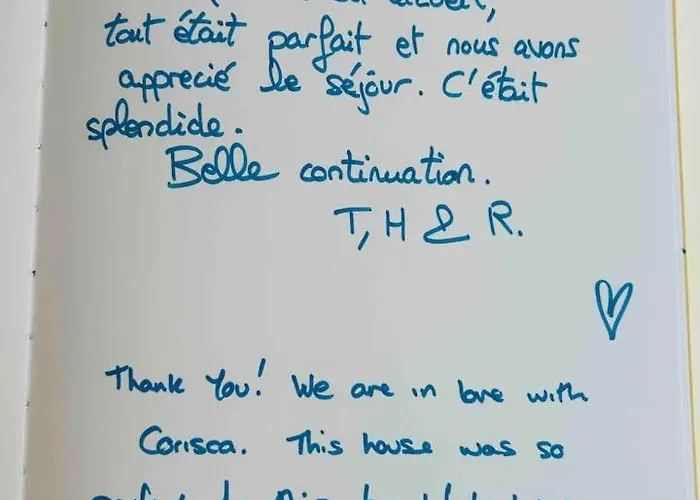 accueil,
tout était parfait et nous avons
apprecié le séjour. C'était
splendide.
Belle continuation.
T, H & R.
Thank You! We are in love with
Corisca. This house was so